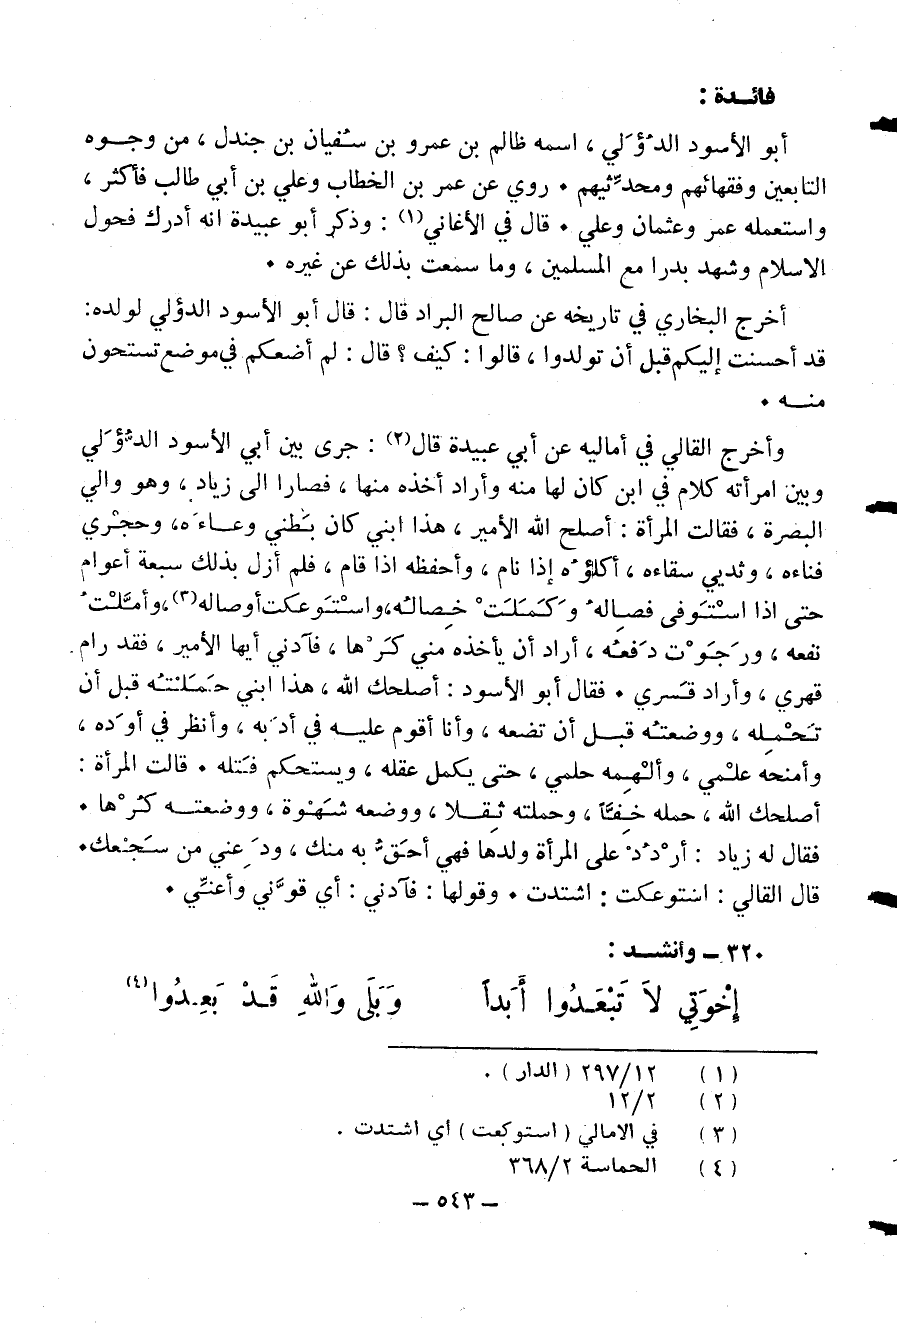 فائـدة :
أبو الأسود الدؤَلي ، اسمه ظالم بن عمرو بن سُفيان بن جندل ، من وجـوه
التابعين وفقهائهم ومحدّثيهم • روي عن عمر بن الخطاب وعلي بن أبي طالب فأكثر ،
واستعمله عمر وعثمان وعلي • قال في الأغاني(١) : وذكر أبو عبيدة انه أدرك فحول
الاسلام وشهد بدرا مع المسلمين ، وما سمعت بذلك عن غيره •
أخرج البخاري في تاريخه عن صالح البراد قال : قال أبو الأسود الدؤلي لولده:
قد أحسنت إليكم قبل أن تولدوا ، قالوا : كيف ؟ قال : لم أضعكم في موضع تستحون
منـه •
وأخرج القالي في أماليه عن أبي عبيدة قال(٢) : جرى بين أبي الأسود الدؤَلي
وبين امرأته كلام في ابن كان لها منه وأراد أخذه منها ، فصارا الى زياد ، وهو والي
البصرة ، فقالت المرأة : أصلح الله الأمير ، هذا ابني كان بَطني وعـاءَه، وحجْري
فناءه ، وثديي سقاءه ، أكلؤُه إذا نام ، وأحفظه اذا قام ، فلم أزل بذلك سبعة أعوام
حتى اذا اسْتَوفى فِصالهُ وكَمَلَتْ خِصالُه، واسْتَوعكت أوصاله(٣)، وأمَّلْتُ
نفعه ، ورَجَوْت دَفعَه ، أراد أن يأخذه مني كَرْها ، فآدني أيها الأمير ، فقد رام
قهري ، وأراد قَسري • فقال أبو الأسود : أصلحك الله ، هذا ابني حَمَلْتُه قبل أن
تَحْمِله ، ووضعتُه قبـل أن تضعه ، وأنا أقوم عليـه في أدَبه ، وأنظر في أوَده ،
وأمنحه علْمي ، وأُلْهِمه حلمي ، حتى يكمل عقله ، ويستحكم فَتله • قالت المرأة :
أصلحك الله ، حمله خِفّاً ، وحملته ثِقـلا ، ووضعه شَهْوة ، ووضعتـه كُرْها •
فقال له زياد : أرْدُدْ على المرأة ولدها فهي أحَقُّ به منك ، ودَعني من سَجْعك•
قال القالي : استوعكت : اشتدت • وقولها : فآدني : أي قوّني وأعنّي •
٣٢٠ ـ وأنشـد :
إِخْوَتِي لاَ تَبْعَدُوا أَبَداً وَبَلَى وَاللهِ قَدْ بَعِـدُوا(٤)
(١) ٢٩٧/١٢ (الدار) .
(٢) ١٢/٢
(٣) في الامالي (استوكعت) اي اشتدت .
(٤) الحماسة ٣٦٨/٢
ـ ٥٤٣ ـ